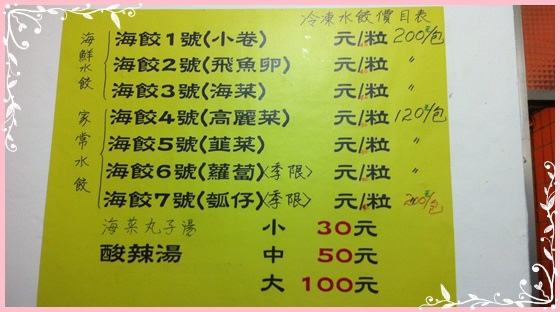 冷凍水餃價目表
海鮮水餃
海餃1號(小卷) 元/粒 200元/包
海餃2號(飛魚卵) 元/粒 〃
海餃3號(海菜) 元/粒 〃
家常水餃
海餃4號(高麗菜) 元/粒 120元/包
海餃5號(韮菜) 元/粒 〃
海餃6號(蘿蔔)〈季限〉 元/粒 〃
海餃7號(瓠仔)〈季限〉 元/粒 200元/包
海菜丸子湯 小 30元
酸辣湯 中 50元
大 100元